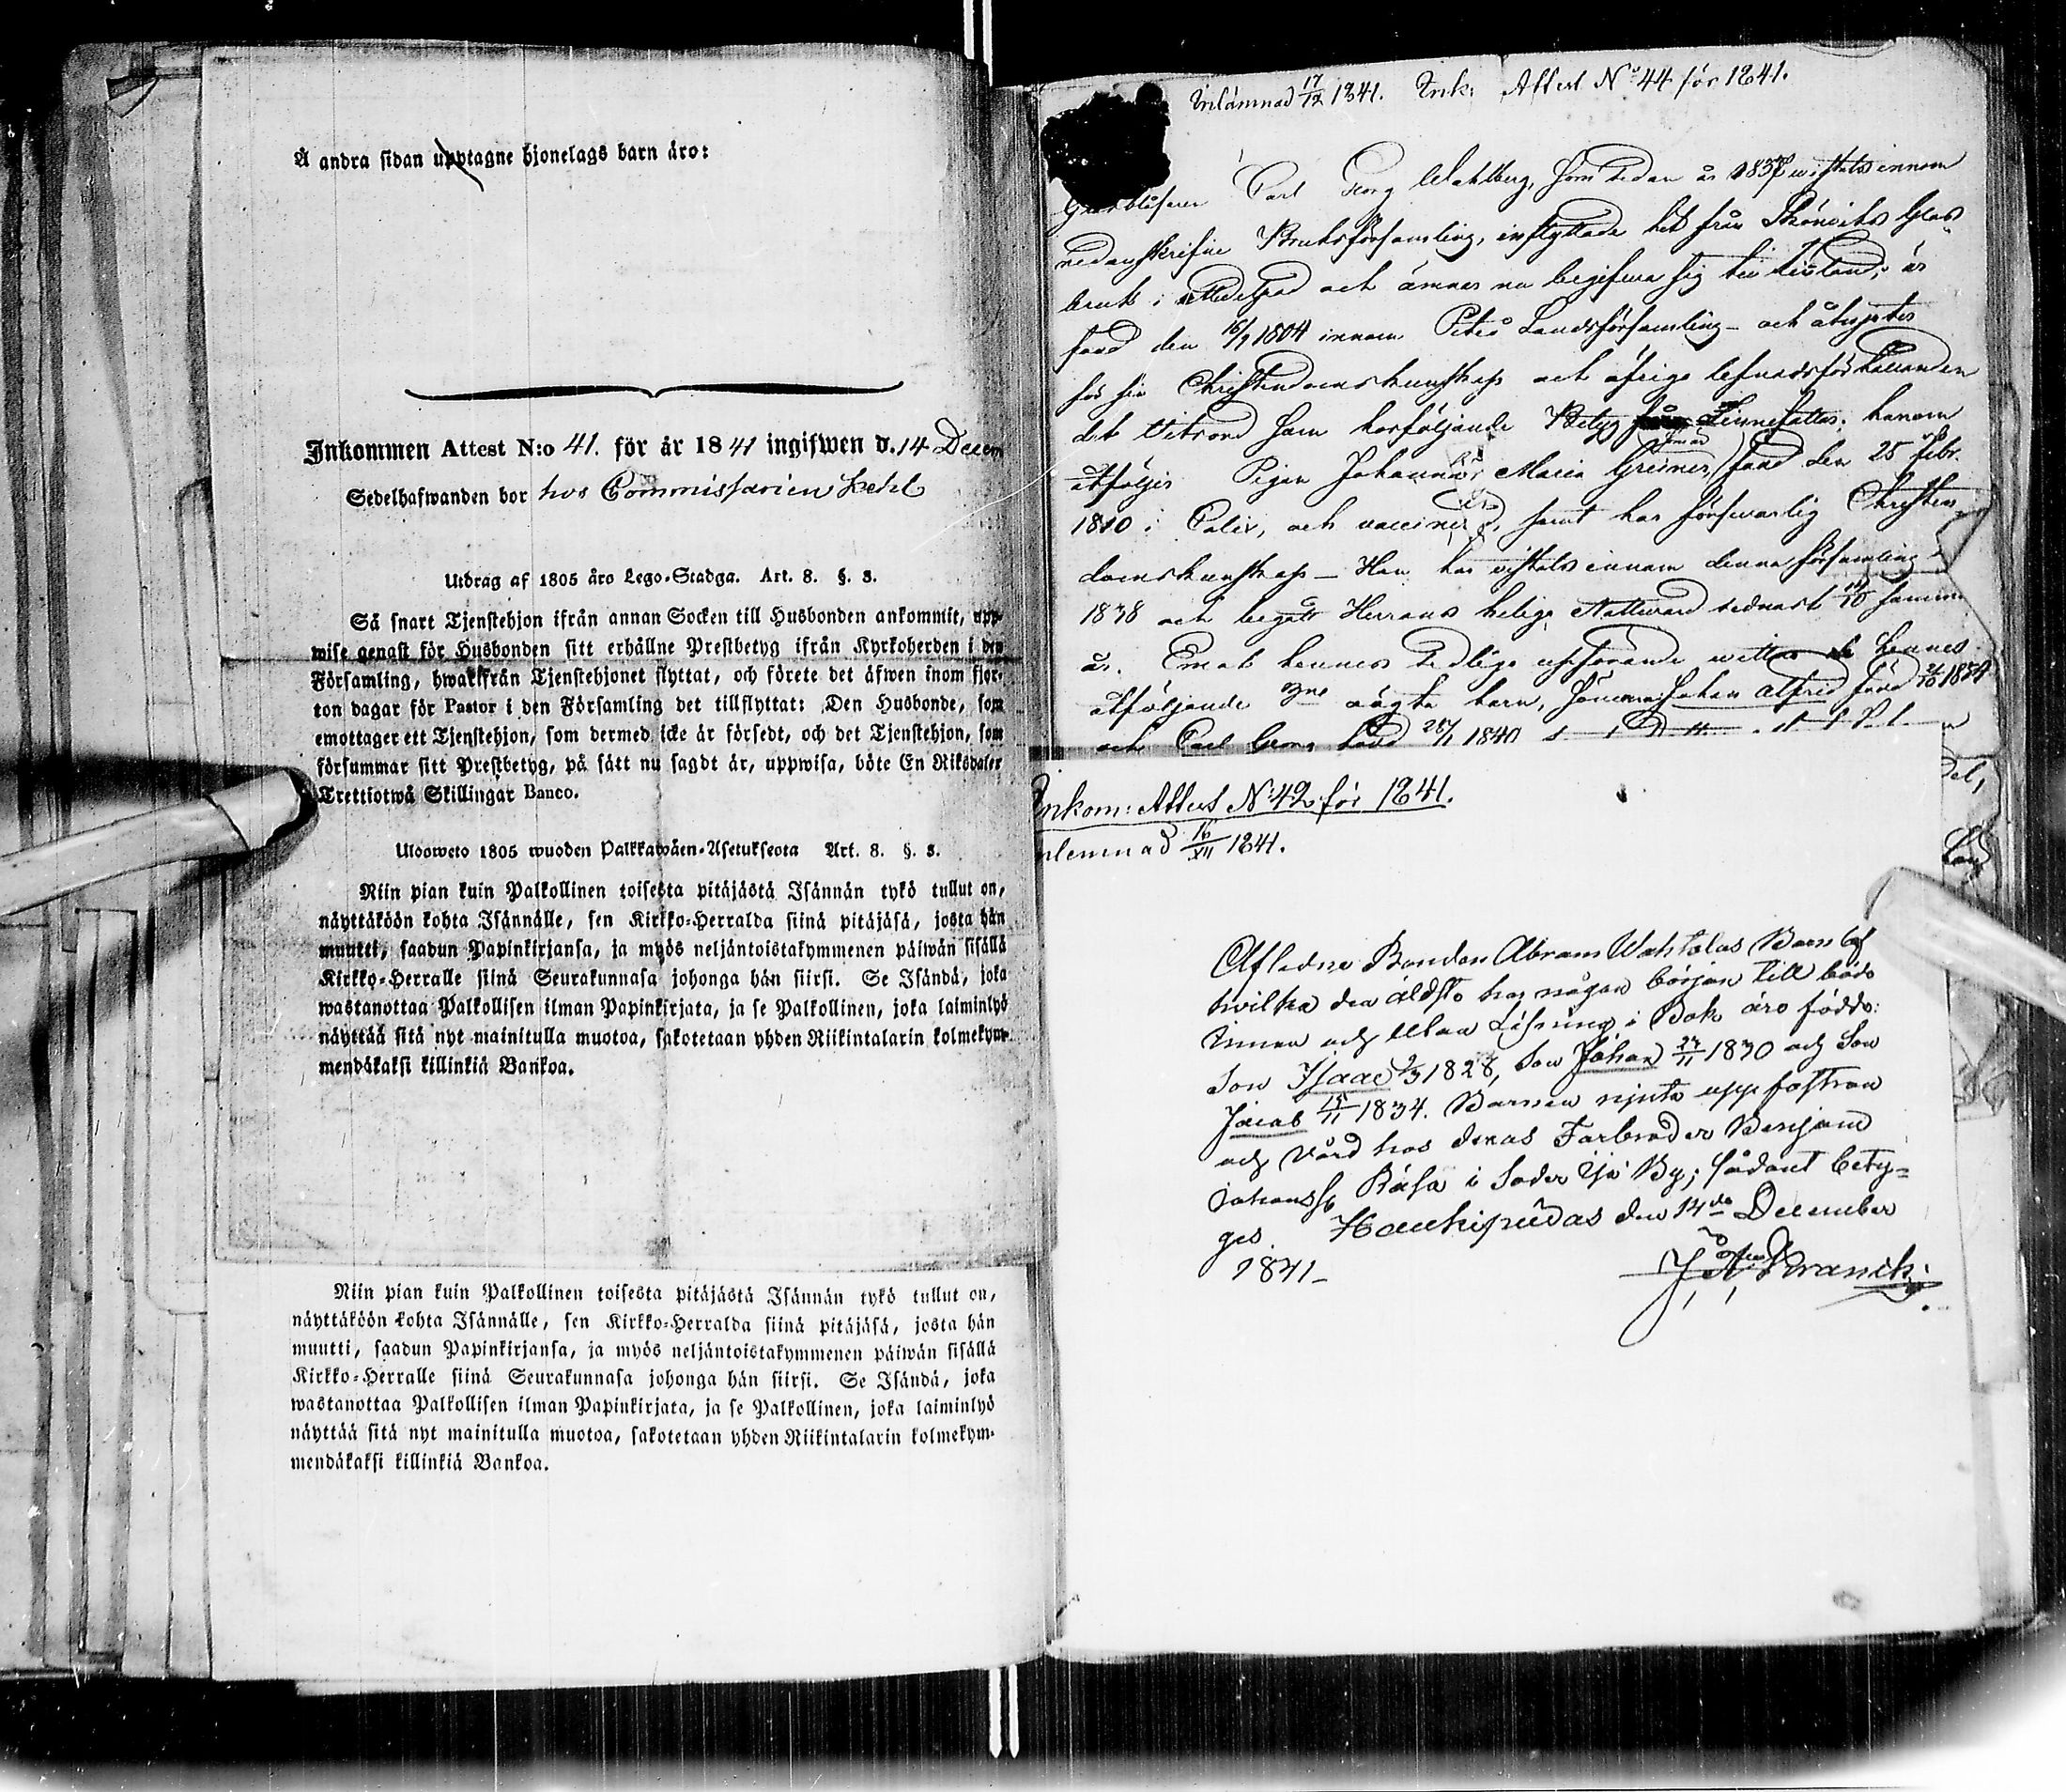 Å andra sidan upptagne hjonelags barn äro:
Inkommen Attest N:o 41. för år 1841 ingifwen d. 14 Decem
Sedelhafwanden bor hos Commissarien
Utdrag af 1805 åro Lego-Stadga. Art. 8. §. 3.
Så snart Tjenstehjon ifrån annan Socken till Husbonden ankommit, upp-
wise genast för Husbonden sitt erhållne Prestbetyg ifrån Kyrkoherden i den
Församling, hwarifrån Tjenstehjonet flyttat, och förete det äfwen inom fjor-
ton dagar för Pastor i den Församling det tillflyttat: Den Husbonde, som
emottager ett Tjenstehjon, som dermed icke är försedt, och det Tjenstehjon, som
försummar sitt Prestbetyg, på sätt nu sagdt är, uppwisa, böte En Riksdaler
Trettiotwå Skillingar Banco.
Ulooweto 1805 wuoden Palkkawäen-Asetukseota Art. 8. §. 3.
Niin pian kuin Palkollinen toisesta pitäjästä Isännän tykö tullut on,
näyttäköön kohta Isännälle, sen Kirkko-Herralda siinä pitäjäsä, josta hän
muutti, saadun Papinkirjansa, ja myös neljäntoistakymmenen päiwän sisällä
Kirkko-Herralle siinä Seurakunnasa johonga hän siirsi. Se Isändä, joka
wastanottaa Palkollisen ilman Papinkirjata, ja se Palkollinen, joka laiminlyö
näyttää sitä nyt mainitulla muotoa, sakotetaan yhden Riikintalarin kolmekym-
mendäkaksi killinkiä Bankoa.
Niin pian kuin Palkollinen toisesta pitäjästä Isännän tykö tullut on,
näyttäköön kohta Isännälle, sen Kirkko-Herralda siinä pitäjäsä, josta hän
muutti, saadun Papinkirjansa, ja myös neljäntoistakymmenen päiwän sisällä
Kirkko-Herralle siinä Seurakunnasa johonga hän siirsi. Se Isändä, joka
wastanottaa Palkollisen ilman Papinkirjata, ja se Palkollinen, joka laiminlyö
näyttää sitä nyt mainitulla muotoa, sakotetaan yhden Riikintalarin kolmekym-
mendäkaksi killinkiä Bankoa.
Inlämnad 17/12 1841. Ink: Attest N:o 44 för 1841.
Carl Georg Wahlberg, som sedan år wistats innom
nedanskrifne Bruksförsamling, inflyttade hit från Glas
bruk i Medelpad och ämnar nu begifwa sig till
född den 16/9 1804 innom Piteå Landsförsamling och åtnjuter
för sin Christendomskunskap och öfrige lefnadsförhållanden
det Witsord som härföljande Betyg innefattar. honom
åtföljer Pigan Johanna Maria Greiner, född den 25 Febr.
1810 i Calix, och vaccinerad, samt har försvarlig Christen
domskunskap — Hon har wistats innom denna församling
1838 och begått Herrans helige Nattvard sednast samma
år. Emot hennes sedlige uppförande hennes
åtföljande oägta barn, Johan Alfred född
och Carl Georg född 1840
Inkom: Attest N:42 för 1841.
nlemnad 16/XII 1841.
Afledne Bonden Abram Wahtolas Barn af
hvilka den äldste har någon början till både
Innan och Utan Läsning i Bok äro födde:
Son Isaac 9/3 1828, Son Johan 27/11 1830 och Son
Jacob 15/11 1834. Barnen njuta uppfostran
och Vård hos deras Farbroder Benjam
Johansson Räisä i Söder Ijå By; sådant bety=
ges Haukipudas den 14de December
1841_